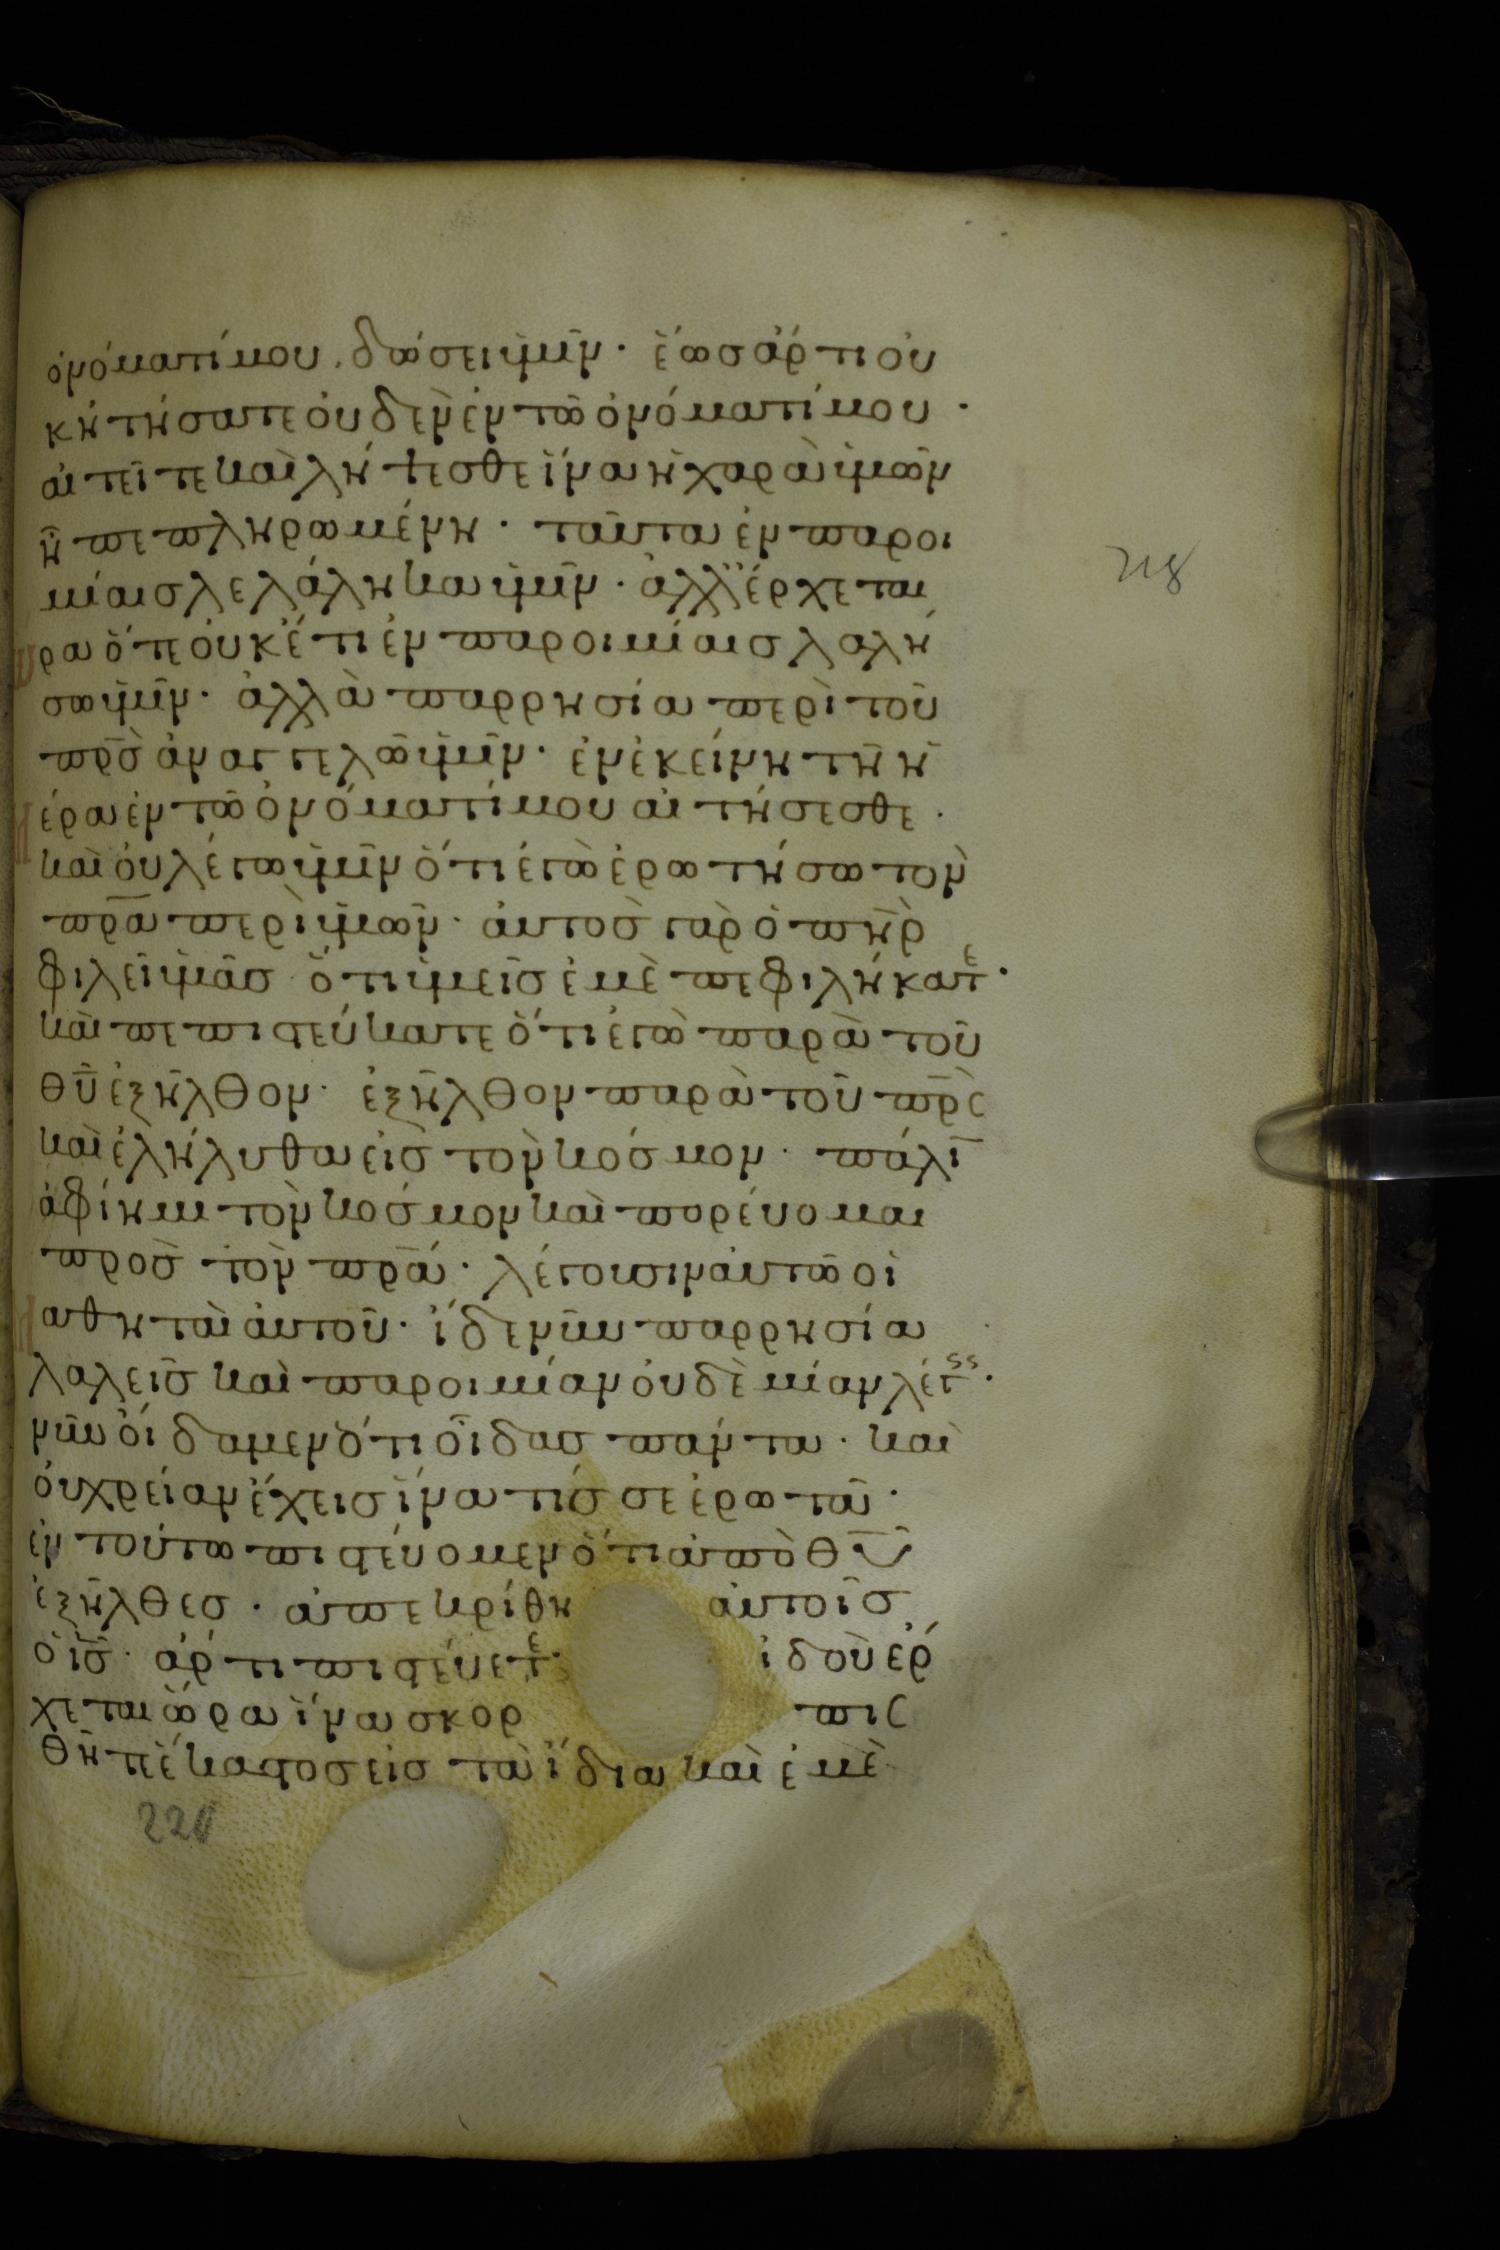 ὀνόματί μου, δώσει ὑμῖν· ἕως ἄρτι οὐ
κ ᾐτήσατε οὐδὲν ἐν τῶ ὀνόματί μου·
αἰτεῖτε καὶ λήψεσθε ἵνα ἡ χαρὰ ὑμῶν
ᾖ πεπληρωμένη· ταῦτα ἐν παροι
μίαις λελάληκα ὑμῖν· ἀλλ' ἔρχεται
ὥρα ὅτε οὐκέτι ἐν παροιμίαις λαλή
σω ὑμῖν· ἀλλὰ παρρησία περὶ τοῦ
πρ̅ς ἀναγγελῶ ὑμῖν· ἐν ἐκείνη τῆ η
μέρα ἐν τῶ ὀνόματί μου αἰτήσεσθε·
καὶ οὐ λέγω ὑμῖν ὅτι ἐγὼ ἐρωτήσω τὸν
πρ̅α περὶ ὑμῶν· αὐτὸς γὰρ ὁ πη̅ρ
φιλεῖ ὑμᾶς ὅτι ὑμεῖς ἐμὲ πεφιλήκατε·
καὶ πεπιστεύκατε ὅτι ἐγὼ παρὰ τοῦ
θυ̅ ἐξῆλθον· ἐξῆλθον παρὰ τοῦ πρ̅ς
καὶ ἐλήλυθα εἰς τὸν κόσμον· πάλι̅
ἀφίημι τὸν κόσμον καὶ πορεύομαι
πρὸς τὸν πρ̅α· λέγουσιν αὐτῶ οἱ
μαθηταὶ αὐτοῦ· ἴδε νῦν παρρησία
λαλεῖς καὶ παροιμίαν οὐδεμίαν λέγεις·
νῦν οἴδαμεν ὅτι οἶδας πάντα· καὶ
οὐ χρείαν ἔχεις ἵνα τίς σε ἐρωτᾶ·
ἐν τούτω πιστεύομεν ὅτι ἀπὸ θυ̅
ἐξῆλθες· ἀπεκρίθη αὐτοῖς
ὁ ις̅· ἄρτι πιστεύετε· ἰδοὺ ἔρ
χεται ὥρα ἵνα σκορ πις
θῆτε ἕκαστος εἰς τὰ ἴδια καὶ ἐμὲ
218
220